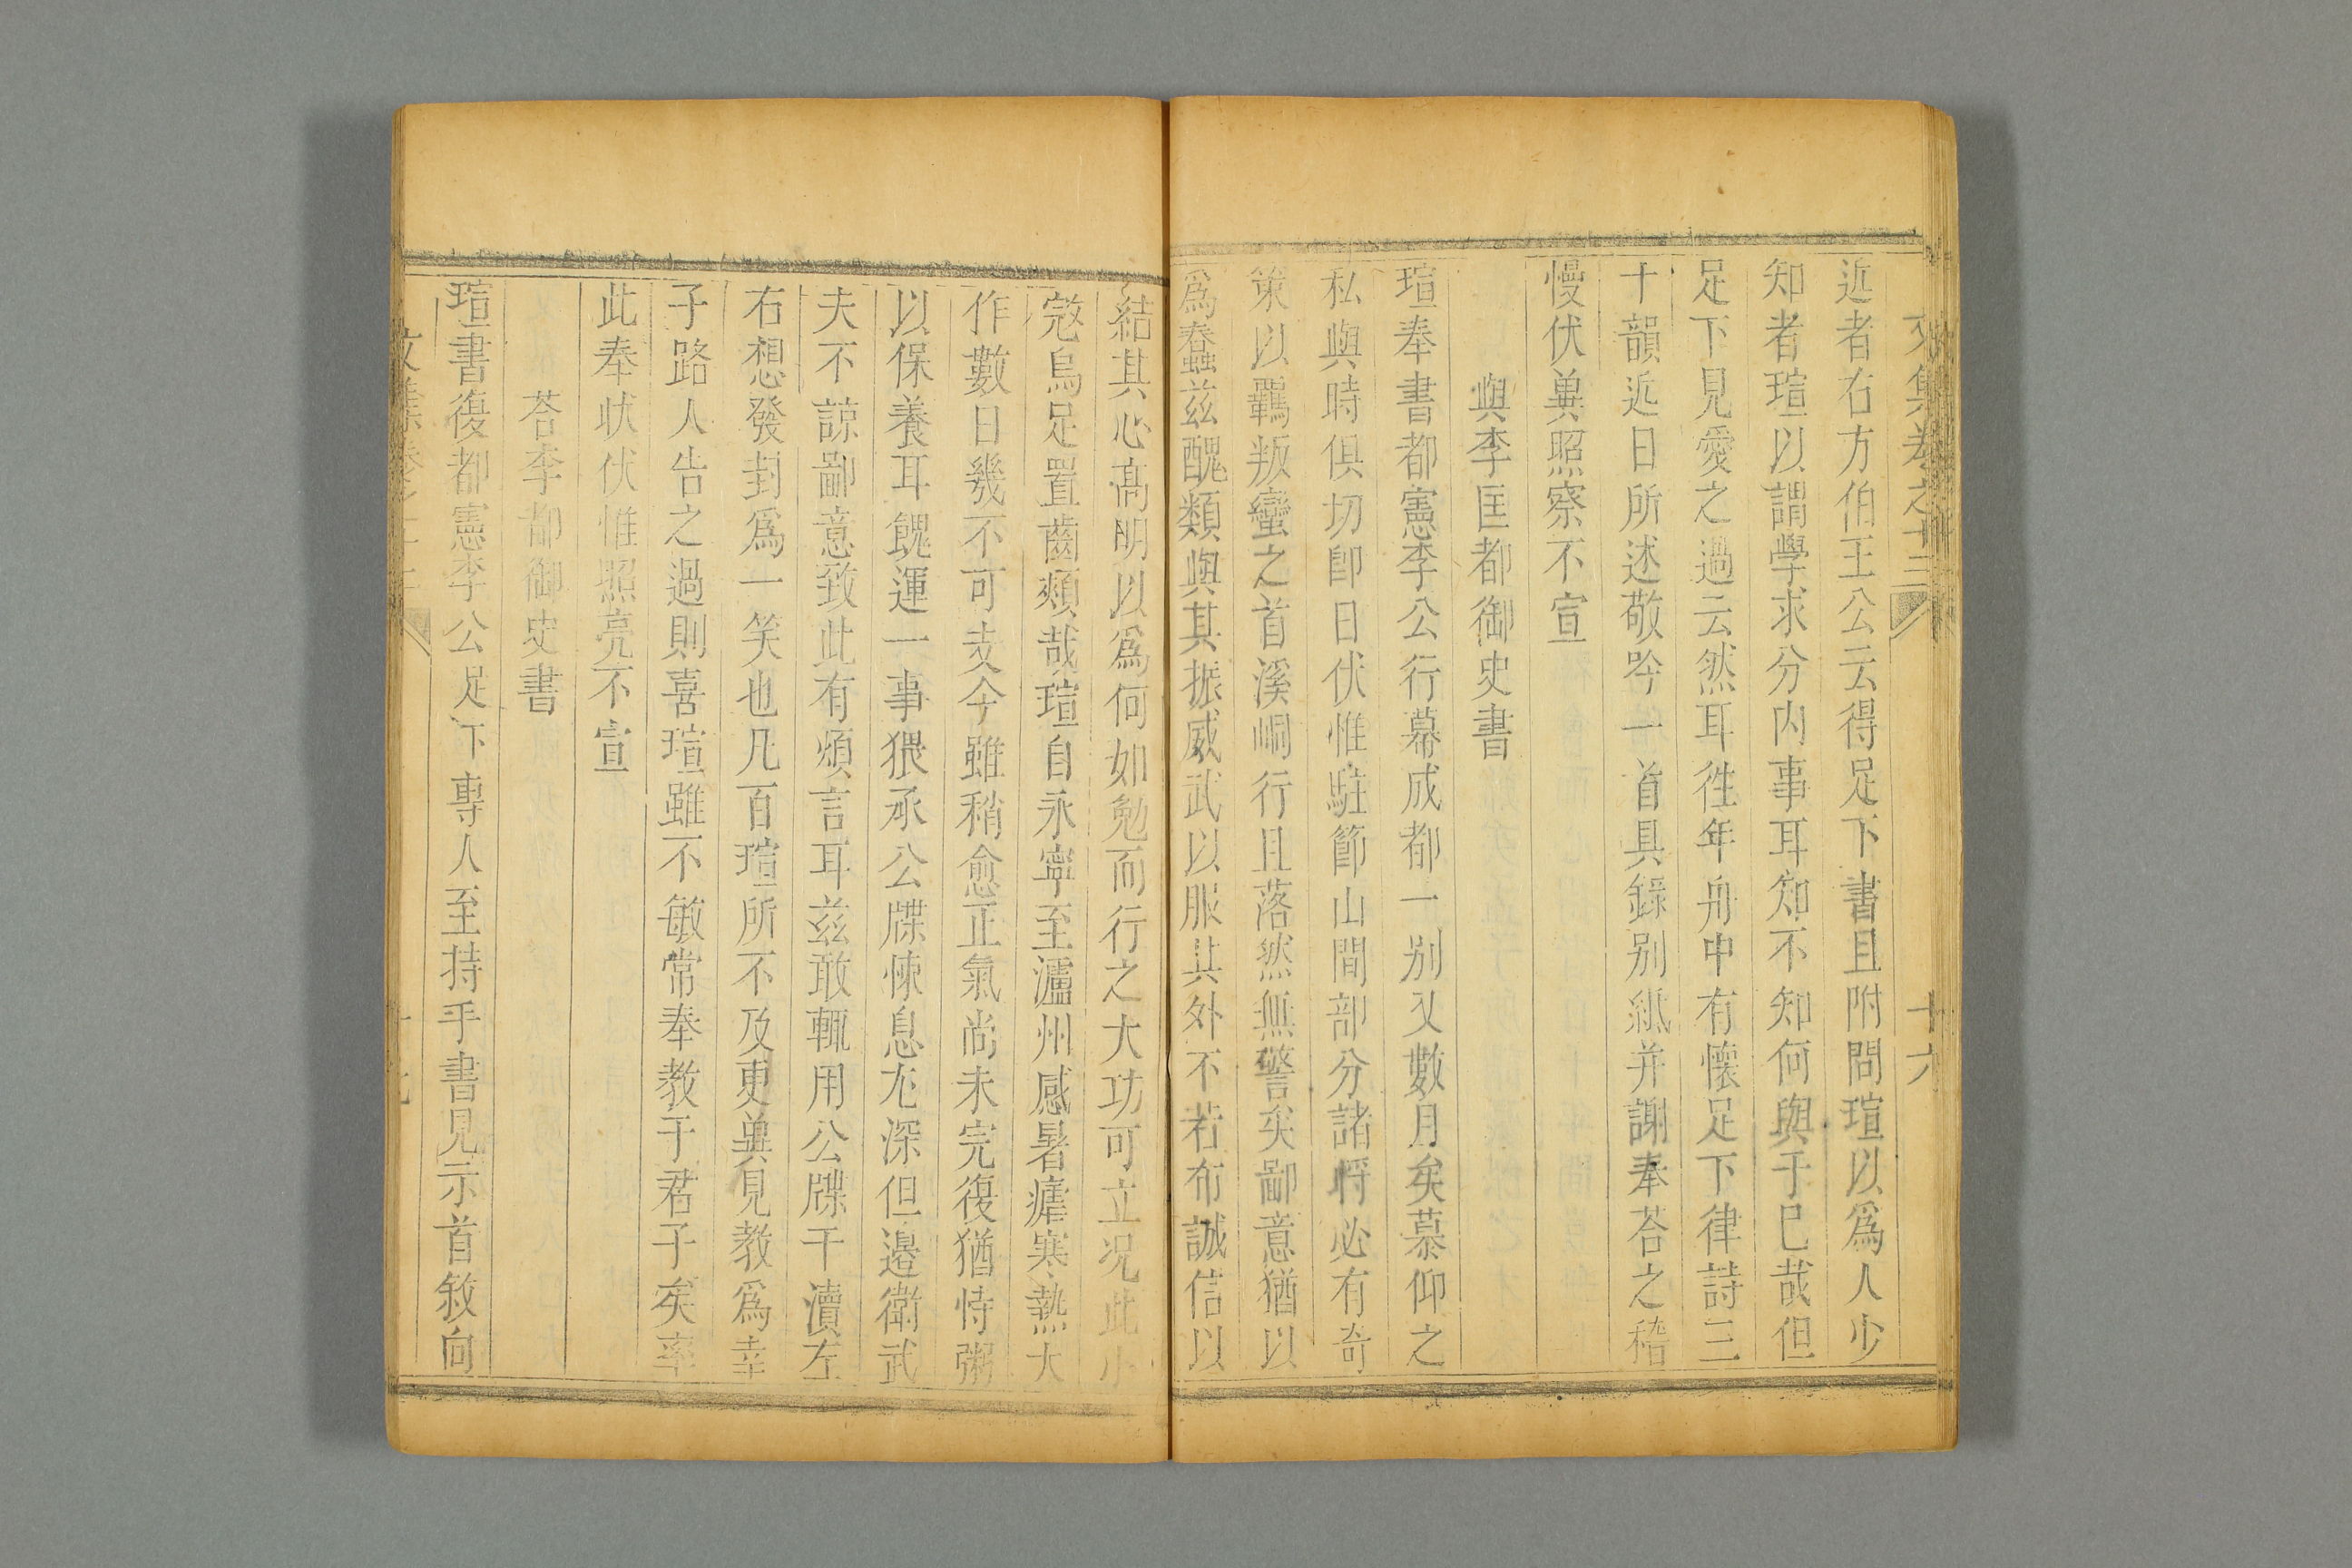 文集卷之十三 十六
近者右方伯王公云得足下書且附問瑄以爲人少
知者瑄以謂學求分内事耳知不知何與于已哉但
足下見愛之過云然耳徃年舟中有懷足下律詩三
十韻近日所述敬吟一首具錄别紙并謝奉荅之稽
慢伏兾照察不宣
與李匡都御史書
瑄奉書都憲李公行幕成都一别又數月矣慕仰之
私與時俱切卽日伏惟駐節山間部分諸將必有奇
策以羈叛蠻之首溪峒行且落然無警矣鄙意猶以
爲蠢兹醜類與其振威武以服其外不若布誠信以
結其心高明以爲何如勉而行之大功可立况此小
宼烏足置齒頰哉瑄自永寧至瀘州感暑瘧寒熱大
作數日幾不可支今雖稍愈正氣尚未完復猶恃粥
以保養耳餽運一事猥承公牒悚息尤深但邉衛武
夫不諒鄙意致此有煩言耳兹敢輒用公牒干瀆左
右想發封爲一笑也凡百瑄所不及更兾見教爲幸
子路人告之過則喜瑄雖不敏常奉教于君子矣率
此奉狀伏惟照亮不宣
荅李都御史書
瑄書復都憲李公足下專人至持手書見示首敘向
文集卷之十三